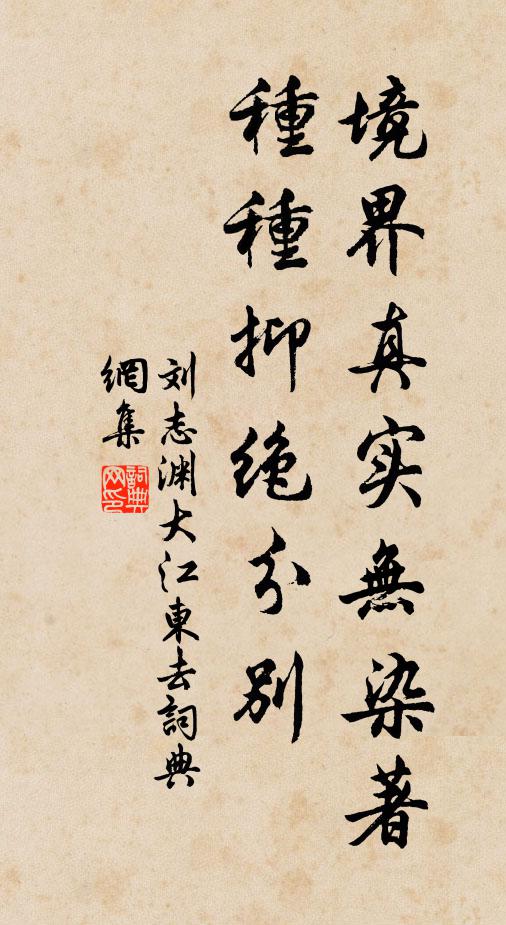 境界真实無染著
種種抑絶分别
刘志渊大江東去詞典
網集
詞典網印